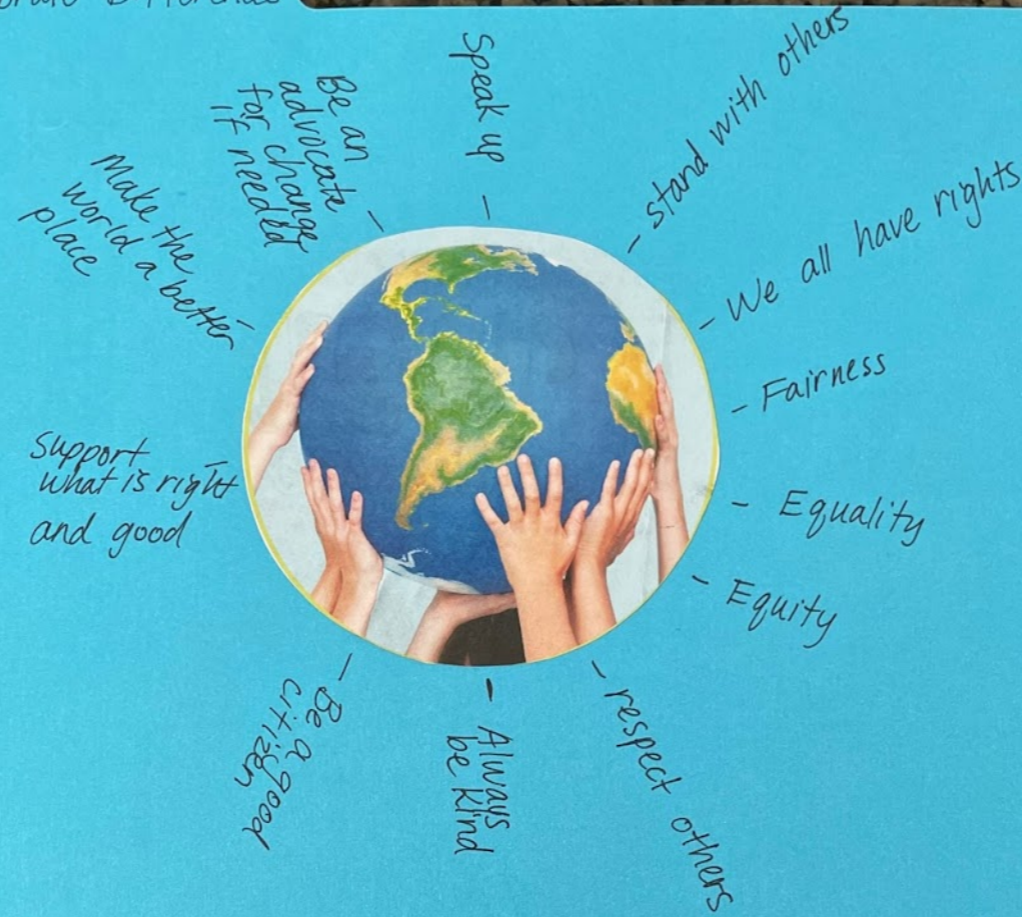 Speak up
stand with others
We all have rights
Fairness
Equality
Equity
respect others
Always
be kind
Be a good
citizen
support
what is right
and good
Make the
world a better
place
Be an
advocate
for change
if needed